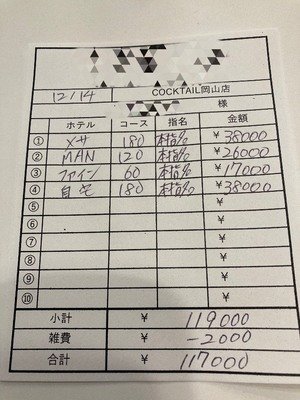 12/14 COCKTAIL岡山店
様
ホテル コース 指名 金額
① メサ 180 本指名 ¥38000
② MAN 120 本指名 ¥26000
③ ファイン 60 本指名 ¥17000
④ 自宅 180 本指名 ¥38000
⑤ ¥
⑥ ¥
⑦ ¥
⑧ ¥
⑨ ¥
⑩ ¥
小計 ¥ 119000
雑費 ¥ -2000
合計 ¥ 117000